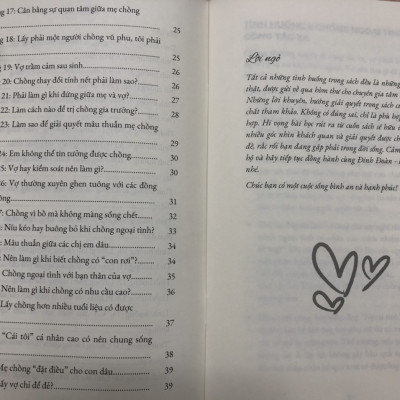 17: Cân bằng sự quan tâm giữa mẹ chồng
25
18: Lấy phải một người chồng vũ phu, tôi phải
25
19: Vợ trầm cảm sau sinh............ 26
20: Chồng thay đổi tính nết phải làm sao?........ 26
21: Phải làm gì khi đứng giữa mẹ và vợ?....... 27
22: Làm cách nào để trị chồng gia trưởng?....... 28
23: Làm sao để giải quyết mâu thuẫn mẹ chồng
29
24: Em không thể tin tưởng được chồng....... 30
25: Vợ hay kiểm soát nên làm gì?....... 30
26: Vợ thường xuyên ghen tuông với các đồng
31
Chồng vì bồ mà không màng sống chết....... 32
: Níu kéo hay buông bỏ khi chồng ngoại tình? 33
: Mâu thuẫn giữa các chị em dâu....... 34
: Nên làm gì khi biết chồng có “con rơi”?....... 34
Chồng ngoại tình với bạn thân của vợ....... 35
Nên làm gì khi chồng có nhu cầu cao?....... 36
Lấy chồng hơn nhiều tuổi liệu có được
37
“Cái tôi” cá nhân cao có nên chung sống
38
Mẹ chồng “đặt điều” cho con dâu....... 39
Lấy vợ chỉ để đẻ?....... 39
Lời ngỏ
Tất cả những tình huống trong sách đều là những
thật, được gửi về qua hòm thư cho chuyên gia tâm
Những lời khuyên, hướng giải quyết trong sách c
chất tham khảo. Không có đúng sai, chỉ là phù hợ
hợp. Hi vọng bài học rút ra từ cuốn sách sẽ hữu
nhiều góc nhìn khách quan và giải quyết được ch
đề, rắc rối bạn đang gặp phải trong đời sống. Cảm
hộ và hãy tiếp tục đồng hành cùng Đinh Đoàn -
nhé.
Chúc bạn có một cuộc sống bình an và hạnh phúc!